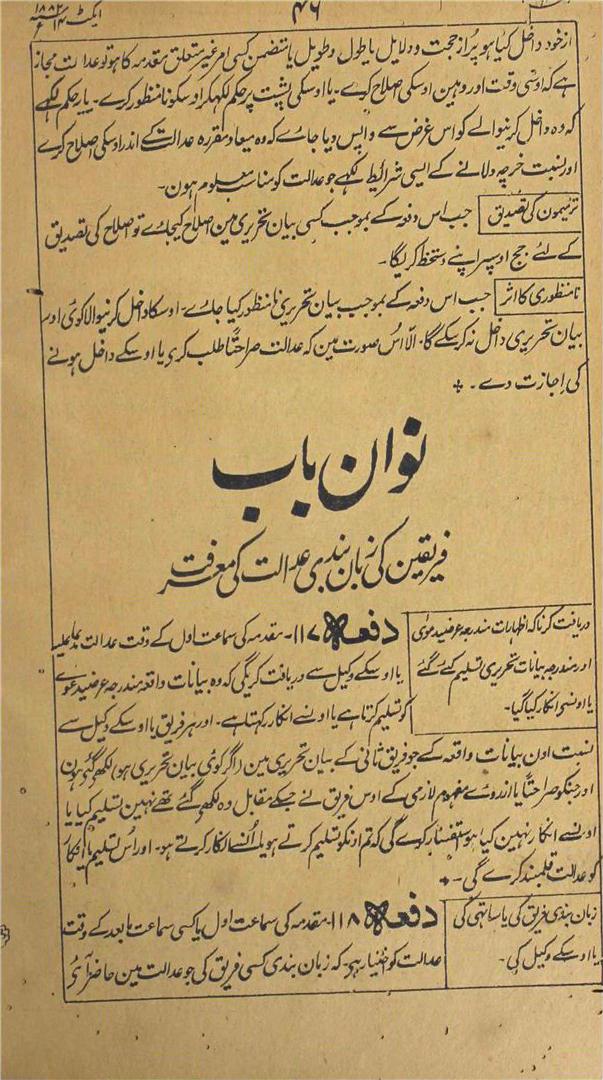 ایکٹ ۱۴ ۱۸۸۲
۴۶
از خود داخل کیا ہو پر از حجت و دلایل یا طول و طویل یا متضمن کسی امر غیر متعلق مقدمہ کا ہو تو عدالت مجاز
ہے کہ اوسی وقت اور وہین اوسکی اصلاح کرے۔ یا اوسکی پشت پر حکم لکھکر اوسکو نامنظور کرے۔ یا یہ حکم لکھے
کہ وہ داخل کرنیوالے کو اس غرض سے واپس دیا جاے کہ وہ میعاد مقررہ عدالت کے اندر اوسکی اصلاح کرے
اور نسبت خرچہ دلانے کے ایسی شرائط لکھے جو عدالت کو مناسب معلوم ہون۔
ترمیمون کی تصدیق جب اس دفعہ کے بموجب کسی بیان تحریری مین اصلاح کیجاے تو اصلاح کی تصدیق
کے لئے جج اوسپر اپنے دستخط کریگا۔
نامنظوری کا اثر جب اس دفعہ کے بموجب بیان تحریری نامنظور کیا جاے۔ اوسکا داخل کرنیوالا کوئی اور
بیان تحریری داخل نہ کرسکے گا۔ الّا اُس صورت مین کہ عدالت صراحتاً طلب کری یا اوسکے داخل ہونے
کی اجازت دے۔
نوان باب
فریقین کی زبان بندی عدالت کی معرفت
دریافت کرنا کہ اظہارات مندرجہ عرضی دعوی
اور مندرجہ بیانات تحریری تسلیم کئے گئے
یا اونسی انکار کیا گیا۔
دفعہ ۱۱۷۔ مقدمہ کی سماعت اول کے وقت عدالت مدعا علیہ
یا اوسکے وکیل سے دریافت کریگی کہ وہ بیانات واقعہ مندرجہ عرضی دعوے
کو تسلیم کرتا ہے یا اونسے انکار رکھتا ہے۔ اور ہر فریق یا اوسکے وکیل سے
نسبت اون بیانات واقعہ کے جو فریق ثانی کے بیان تحریری مین (اگر کوئی بیان تحریری ہو) لکھے گئے ہون
اور جنکو صراحتاً یا از روے مفہوم لازمی کے اوس فریق نے جسکے مقابل وہ لکھے گئے تھے نہین تسلیم کیا یا
اونسے انکار نہین کیا ہو استفسار کرے گی کہ تم اونکو تسلیم کرتے ہو یا اُنسے انکار کرتے ہو۔ اور اُس تسلیم یا انکار
کو عدالت قلمبند کرے گی۔
زبان بندی فریق کی یا ساتھی کی
یا اوسکے وکیل کی۔
دفعہ ۱۱۸۔ مقدمہ کی سماعت اول یا کسی سماعت مابعد کے وقت
عدالت کو اختیار ہی کہ زبان بندی کسی فریق کی جو عدالت مین حاضر آئے